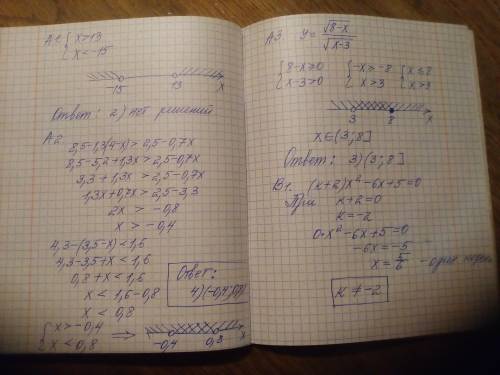 А1. { x>13
x<-15
-15 13 x
Ответ: 2) нет решений
А2.
8,5-1,3(4-x)>2,5-0,7x
8,5-5,2+1,3x>2,5-0,7x
3,3+1,3x>2,5-0,7x
1,3x+0,7x>2,5-3,3
2x>-0,8
x>-0,4
4,3-(3,5-x)<1,6
4,3-3,5+x<1,6
0,8+x<1,6
x<1,6-0,8
x<0,8
Ответ:
4)(-0,4;0,8)
{ x>-0,4
x<0,8 ⇒ -0,4 0,8 x
А3. y=√(8-x)/√(x-3)
{ 8-x≥0 { -x≥-8 { x≤8
x-3>0 x>3 x>3
3 8 x
x∈(3;8]
Ответ: 3)(3;8]
В1. (k+2)x²-6x+5=0
При k+2=0
k=-2
0·x²-6x+5=0
-6x=-5
x=5/6 - один корень
k≠-2